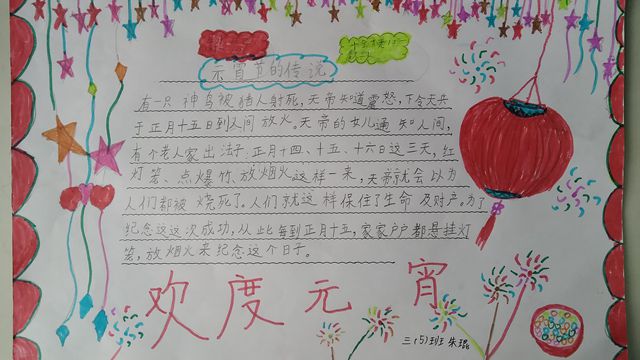 元宵节的传说
有一只神鸟被猎人射死,天帝知道震怒,下令天兵
于正月十五日到人间放火。天帝的女儿通知人间,
有个老人家出法子:正月十四、十五、十六日这三天,红
灯笼、点爆竹、放烟火这样一来,天帝就会以为
人们都被烧死了。人们就这样保住了生命及财产。为了
纪念这次成功,从此每到正月十五,家家户户都悬挂灯
笼,放烟火来纪念这个日子。
欢度元宵
三(5)班朱琨